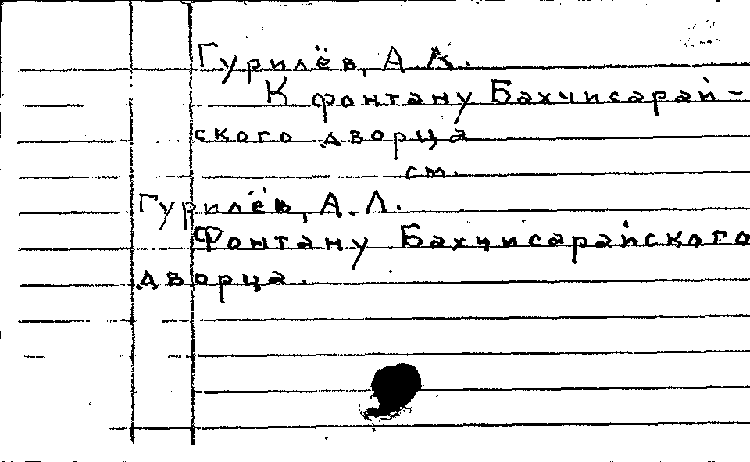 Гурилёв, А. Л.
К фонтану Бахчисарай-
ского дворца
см.
Гурилёв, А. Л.
Фонтану Бахчисарайского
дворца.